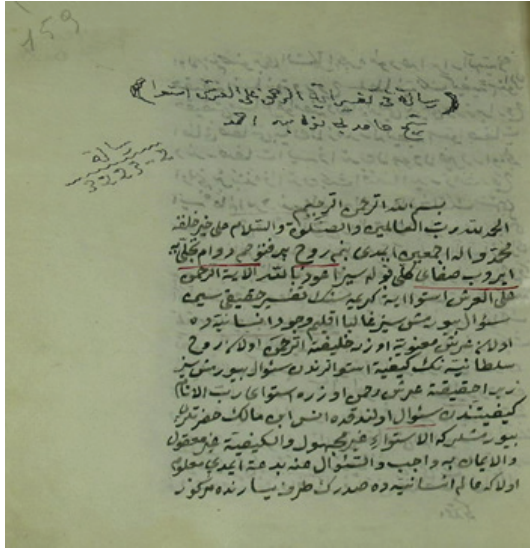 159
رساله فى تفسير اية الرحمن على العرش استوا
شيخ حامد بي نوا بيه احمد
رساله
3223-2
بسم الله الرحمن الرحيم
الحمد لله رب العالمين والصلوة والسلام على خير خلقه
محمد واله اجمعين ايمدى بنم روح پر فتوحم دوام تجلى يه
ايروب صفاى قلبى قوله سيز اعوذ بالله الاية الرحمن
على العرش استوا اية كريمه سنك تفسير حقيقى سيى
سؤال بيورمش سيز غالبا اقليم وجود انسانيه ده
اولان عرش معنويه اوزره خليفة الرحمن اولان روح
سلطانيه نك كيفية استواسرندن سؤال بيورمش سيز
زيرا حقيقة عرش رحمن اوزره استواى رب الانام
كيفيتندن سؤال اولندقده انس ابن مالك حضرتلرى
بيورمشلر كه الاستواء غير مجهول والكيفية غير معقول
والايمان به واجب والسؤال عنه بدعة ايمدى معلوم
اولا كه عالم انسانيه ده صدرك طرف يسارنده مركوز